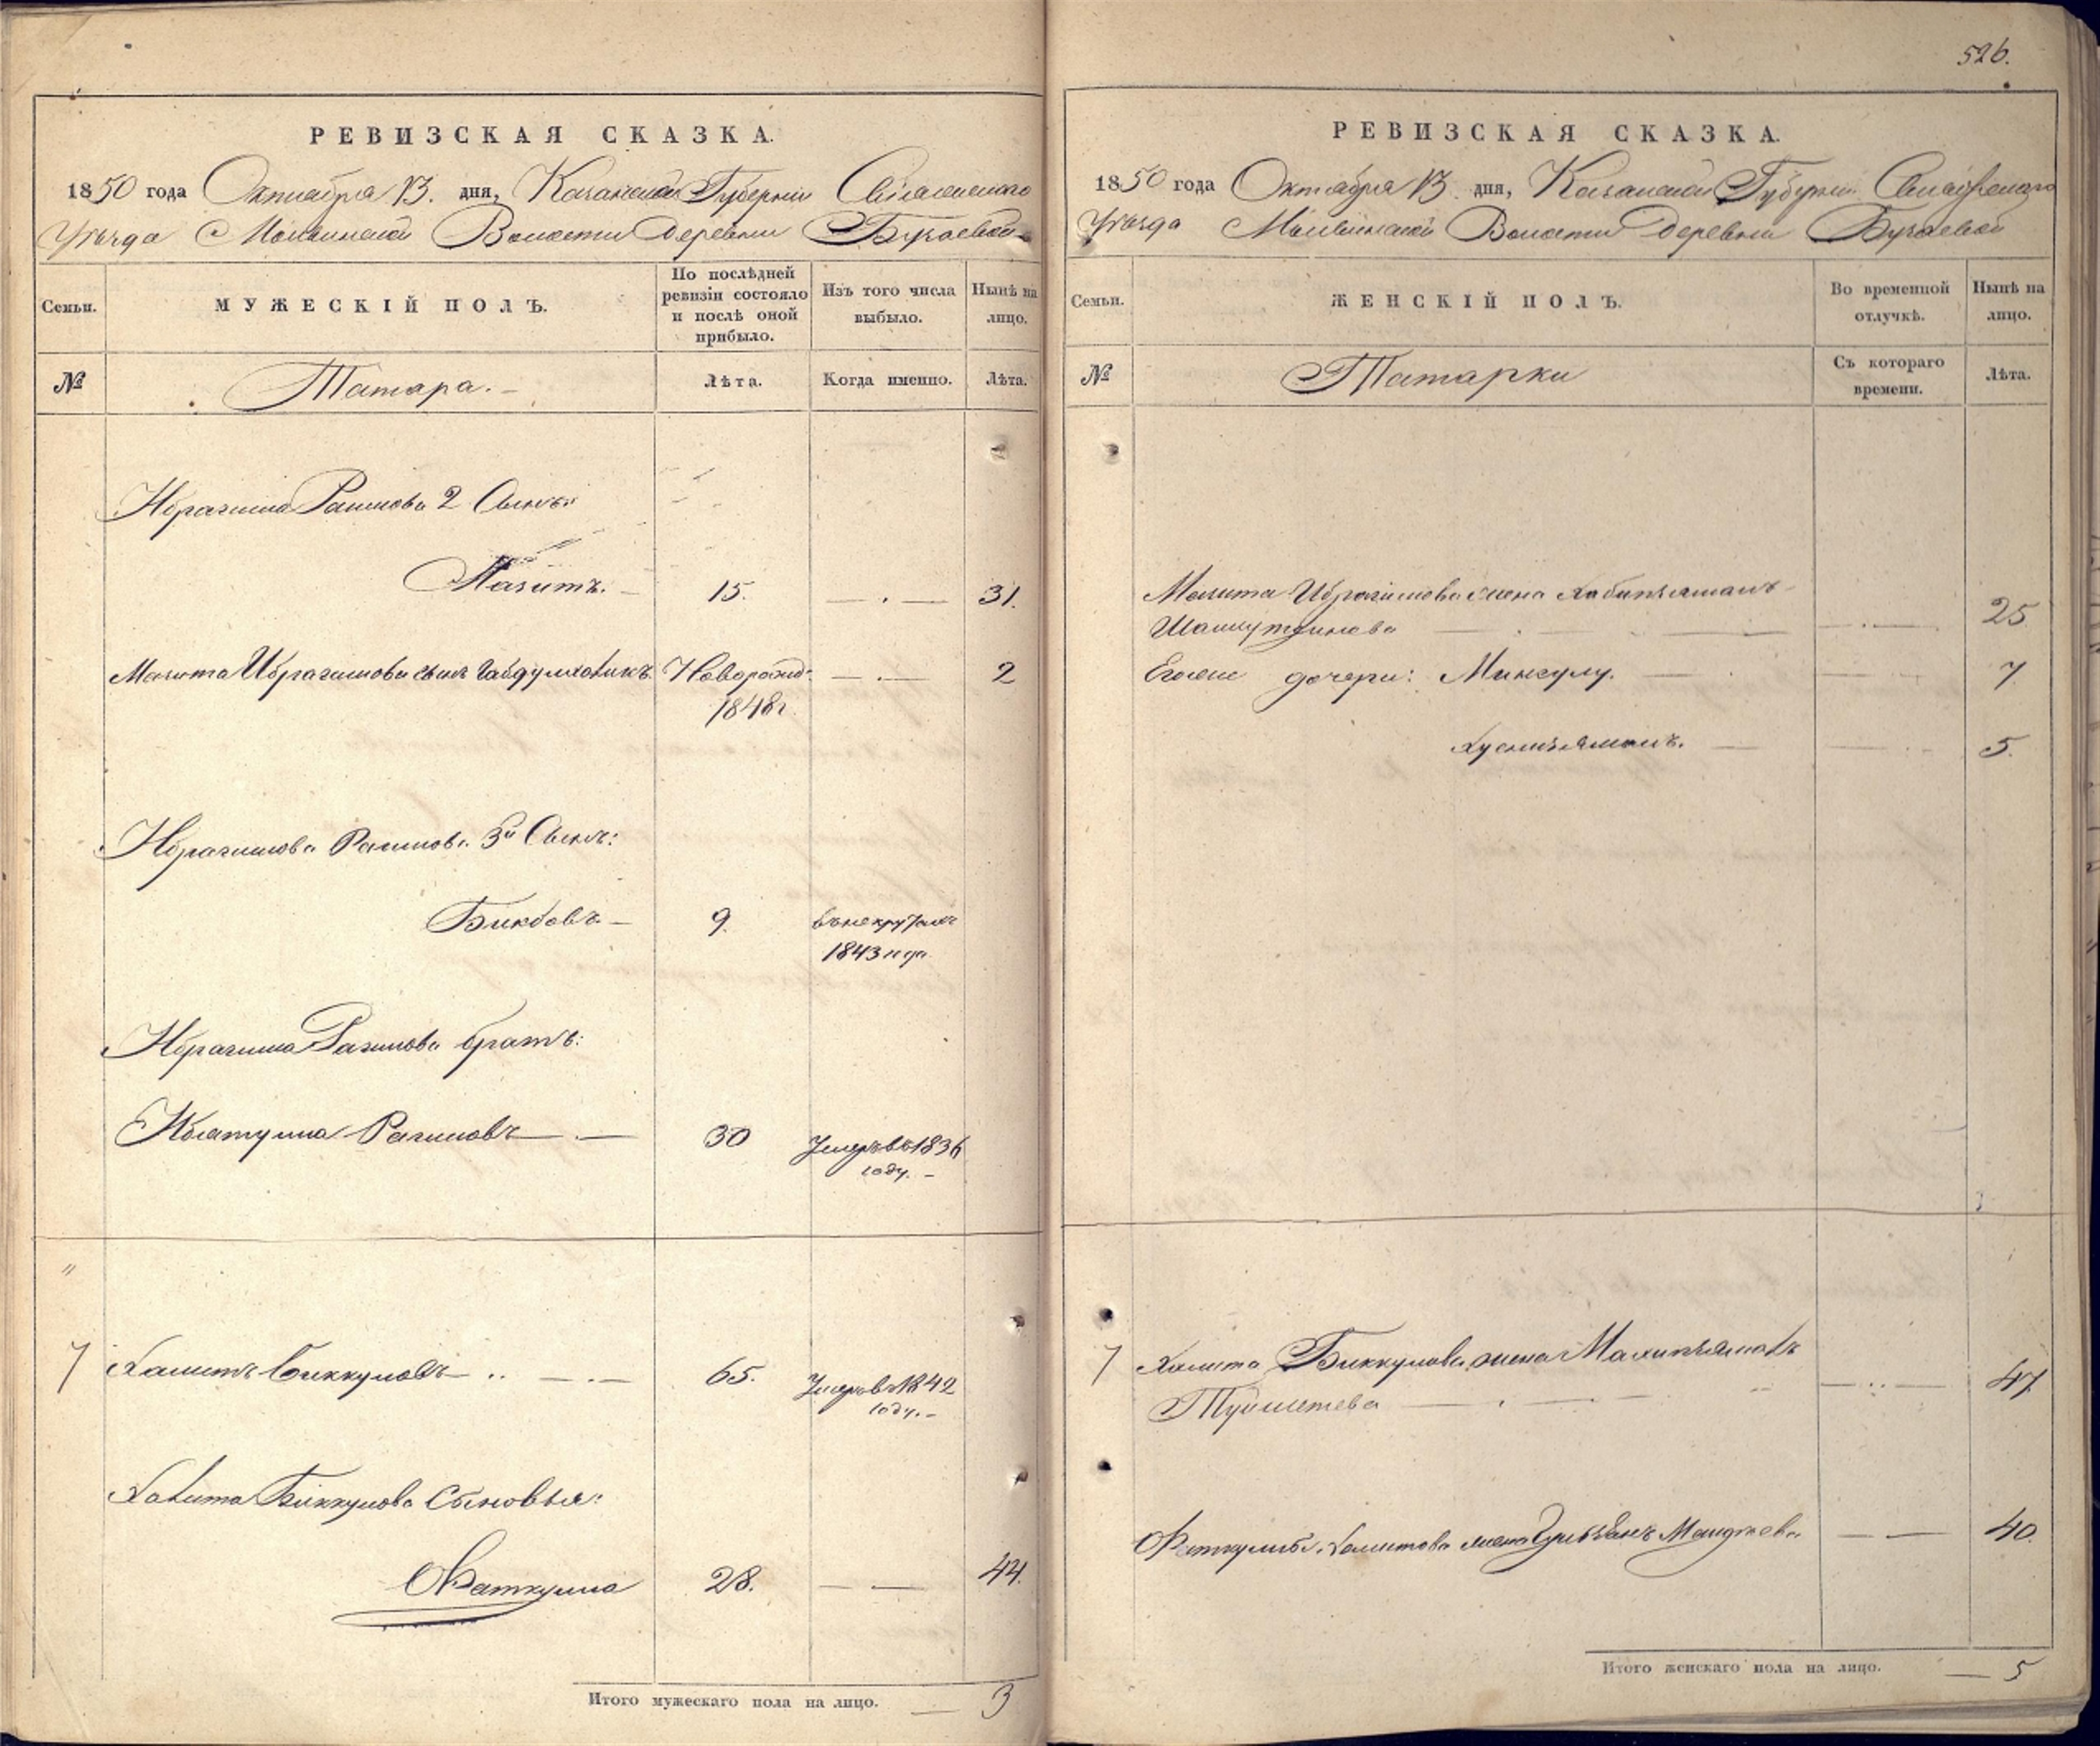 526.
РЕВИЗСКАЯ СКАЗКА.
1850 года Октября 13. дня, Казанской Губернии Свіяжскаго
Уѣзда Молвинской Волости Деревни Бузаевой
Семьи.
МУЖЕСКІЙ ПОЛЪ.
По послѣдней
ревизіи состояло
и послѣ оной
прибыло.
Изъ того числа
выбыло.
Нынѣ на
лицо.
№
Татара.
Лѣта.
Когда именно.
Лѣта.
Ибрагима Рагимова 2 Сынъ:
Мазитъ.
15.
31.
Мазита Ибрагимова сынъ Габдулхаликъ.
Новорожд:
1848 г.
2
Ибрагимова Рагимова 3й Сынъ:
Бикбовъ
9.
въ некрутахъ
1843 года
Ибрагима Рагимова братъ:
Рагимовъ
30
Умеръ въ 1836
году.
7
Халитъ Биккуловъ
65.
Умеръ въ 1842
году.
Халита Биккулова Сыновья:
Фаткулла
28.
44.
Итого мужескаго пола на лицо.
3
РЕВИЗСКАЯ СКАЗКА.
1850 года Октября 13. дня, Казанской Губерніи Свіяжскаго
Уѣзда Молвинской Волости Деревни Бузаевой
Семьи.
ЖЕНСКІЙ ПОЛЪ.
Во временной
отлучкѣ.
Нынѣ на
лицо.
№
Татарки
Съ котораго
времени.
Лѣта.
Мазита Ибрагимова жена Хабипзямалъ
25
Егоже дочери: Мингулу.
7
Хуснизямалъ.
5.
7
Халита Биккулова жена
47
Халитова жена
40.
Итого женскаго пола на лицо.
5